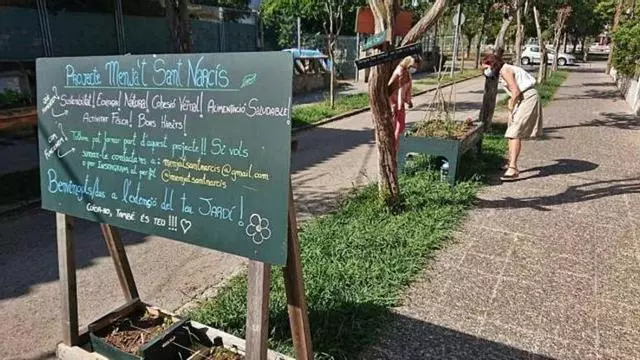 Projecte Menja't Sant Narcís
Sostenibilitat! Ecologia! Natura! Cohesió Veïnal! Alimentació Saludable
Activitat Física! Bons Hàbits!
Tothom pot formar part d'aquest projecte!! Si vols
sumar-te contacta'ns a: menjatsantnarcis@gmail.com
o per Instagram al perfil @menjatsantnarcis
Benvinguts/das a l'extensió del teu Jardí!
Cuida-ho, també és teu!!!